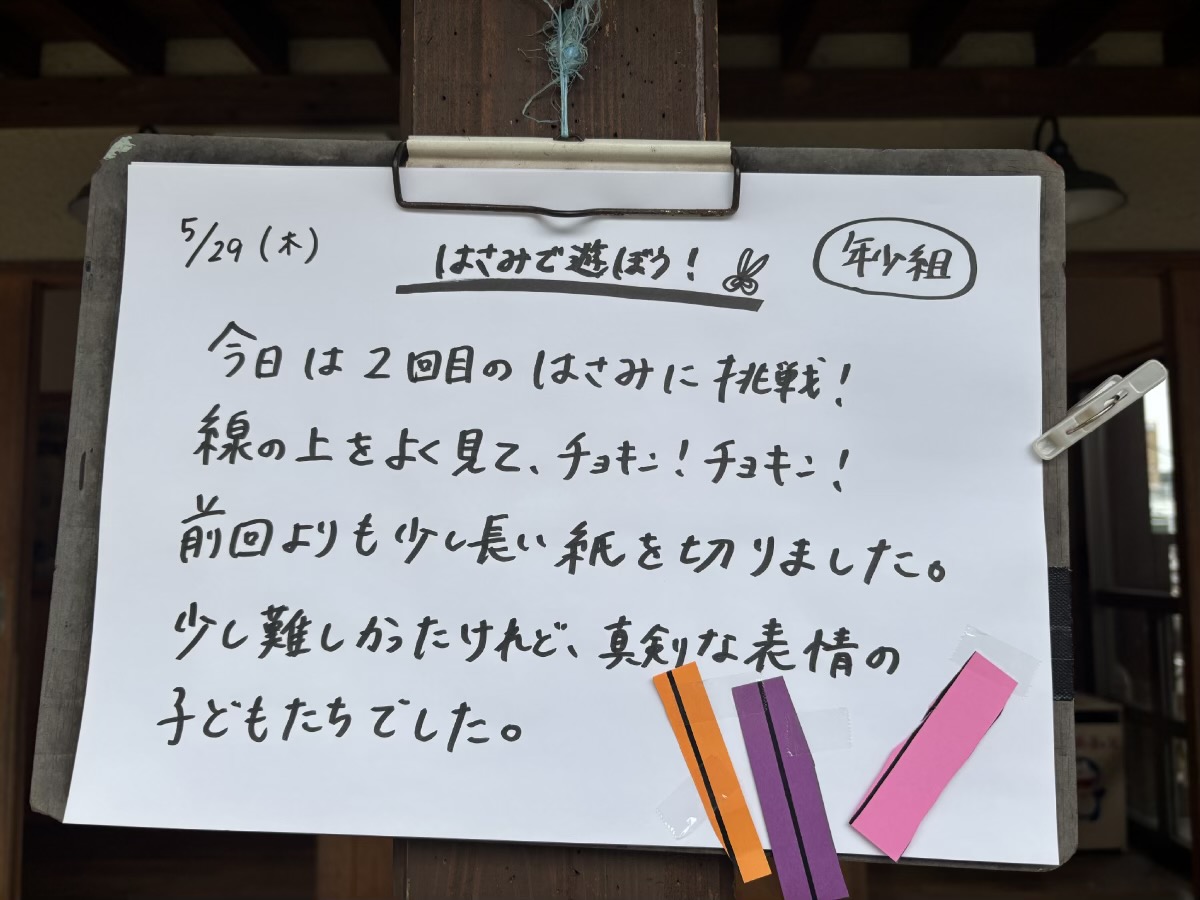 5/29(木)
はさみで遊ぼう!
年少組
今日は2回目のはさみに挑戦!
線の上をよく見て、チョキン!チョキン!
前回よりも少し長い紙を切りました。
少し難しかったけれど、真剣な表情の
子どもたちでした。